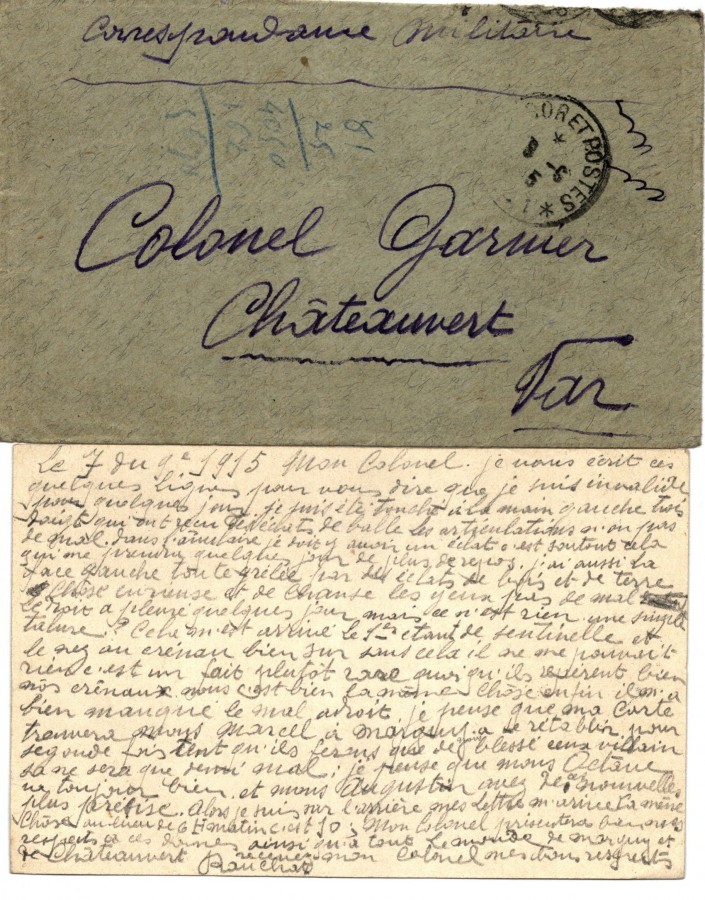 Correspondance Militaire
OR ET POSTES *
Colonel Garnier
Châteauvert
Var
Le 7 du 9e 1915 Mon Colonel. je vous écrit ces
quelques lignes pour vous dire que je suis invalide
pour quelques jour. Je suis été touché à la main gauche trois
doigt qui ont reçu des éclats de balle les articulations n'on pas
de mal. dans l'anulaire je doit y avoir un éclat c'est surtout cela
qui me prendra quelques jour de plus de repos. j'ai aussi la
face gauche toute grêlée par des éclats de bois et de terre
Chose curieuse et de chanse les yeux pas de mal
le droit a pleuré quelques jour mais ce n'est rien une simple
Cela m'est arrivé le 1er étant de sentinelle et
le nez au crénau bien sur sans cela il ne me pouvait
rien c'est un fait plutôt rare quoi qu'ils repèrent bien
nos crénaux nous c'est bien la même chose enfin il m'a
bien manqué le mal adroit. je pense que ma carte
trouvera mons Marcel à marquy. a se rétablir pour
segonde fois tent qu'ils ferons que des blessé ceux vilain
sa ne sera que demi mal; je pense que mons Octave
va toujour bien et mons Augustin avez de nouvelles
plus précise. Alors je suis sur l'arrière mes lettre m'arrive la même
chose au lieu de 6h matin c'est 10; Mon Colonel présentera bien mes
respects a ces dames ainsi qu'à tout le monde de marquy et
de Châteauvert recevez mon Colonel mes bons respects